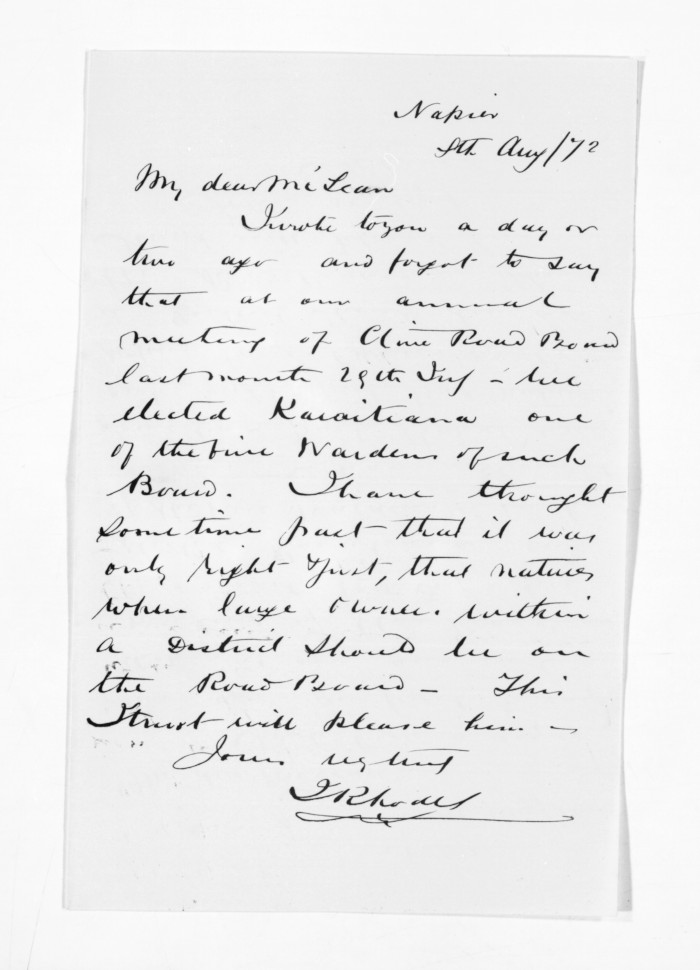 Napier
8th Aug/72
My dear McLean
I wrote to you a day or
two ago and forgot to say
that at our annual
meeting of Clive Road Board
last month 29th July - we
elected Karaitiana one
of the five Wardens of such
Board. I have thought
sometime past that it was
only right & just, that natives
when large owners within
a District should be on
the Road Board - This
I trust will please him -
Yours very truly
J Rhodes